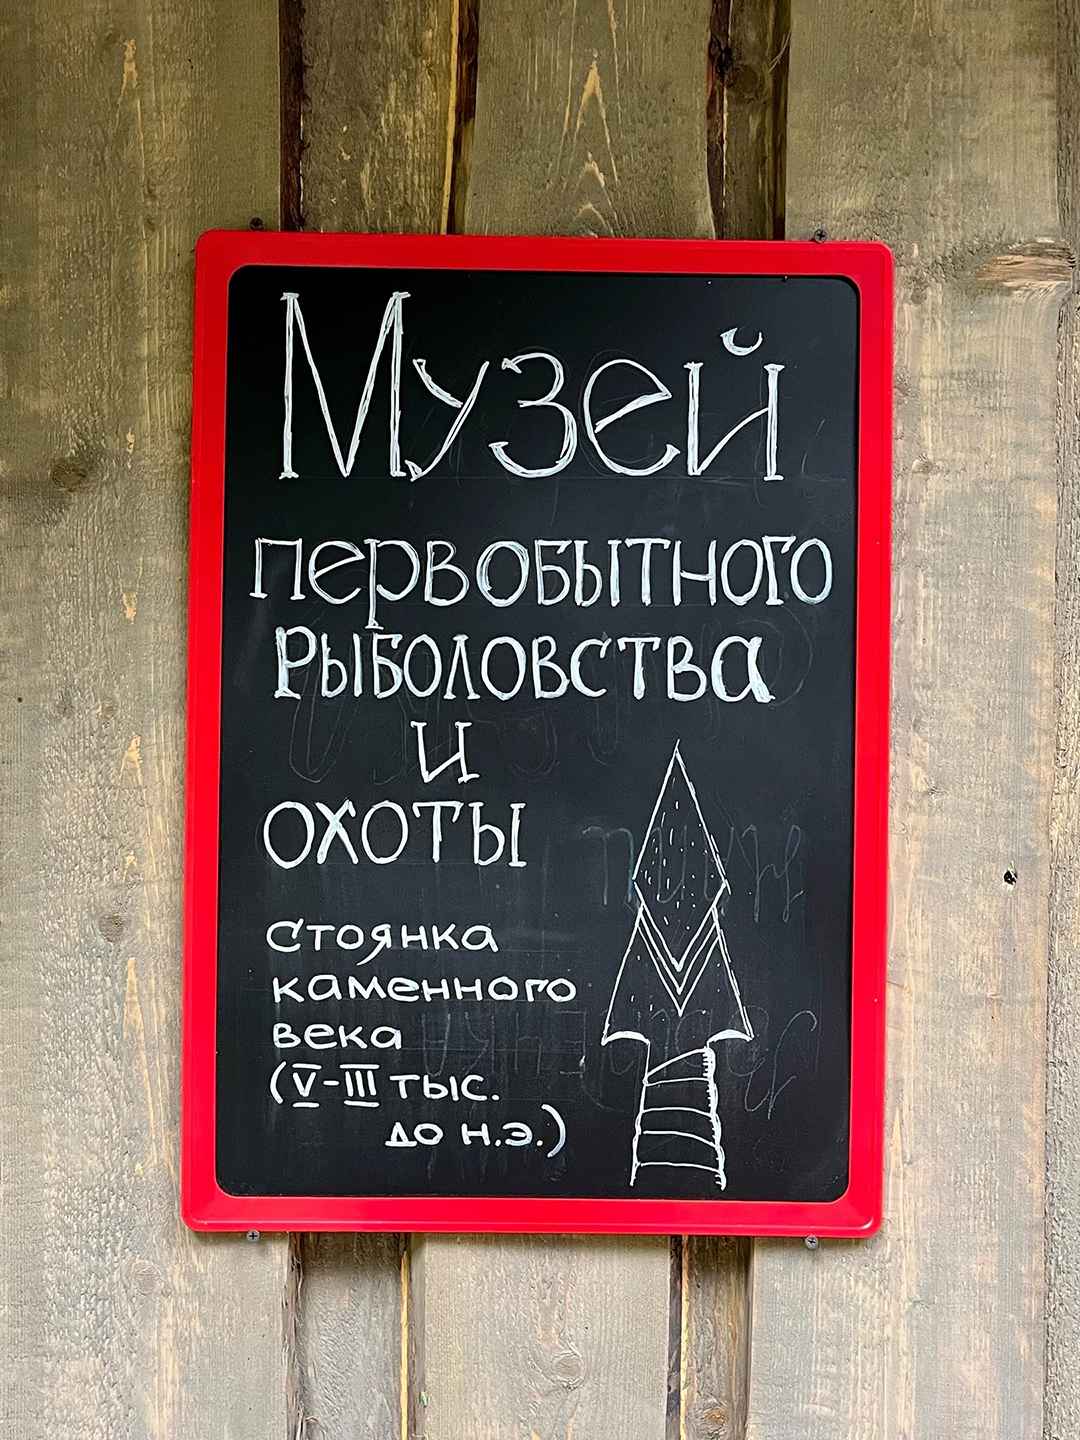 Музей
первобытного
рыболовства
и
охоты
стоянка
каменного
века
(V-III тыс.
до н.э.)